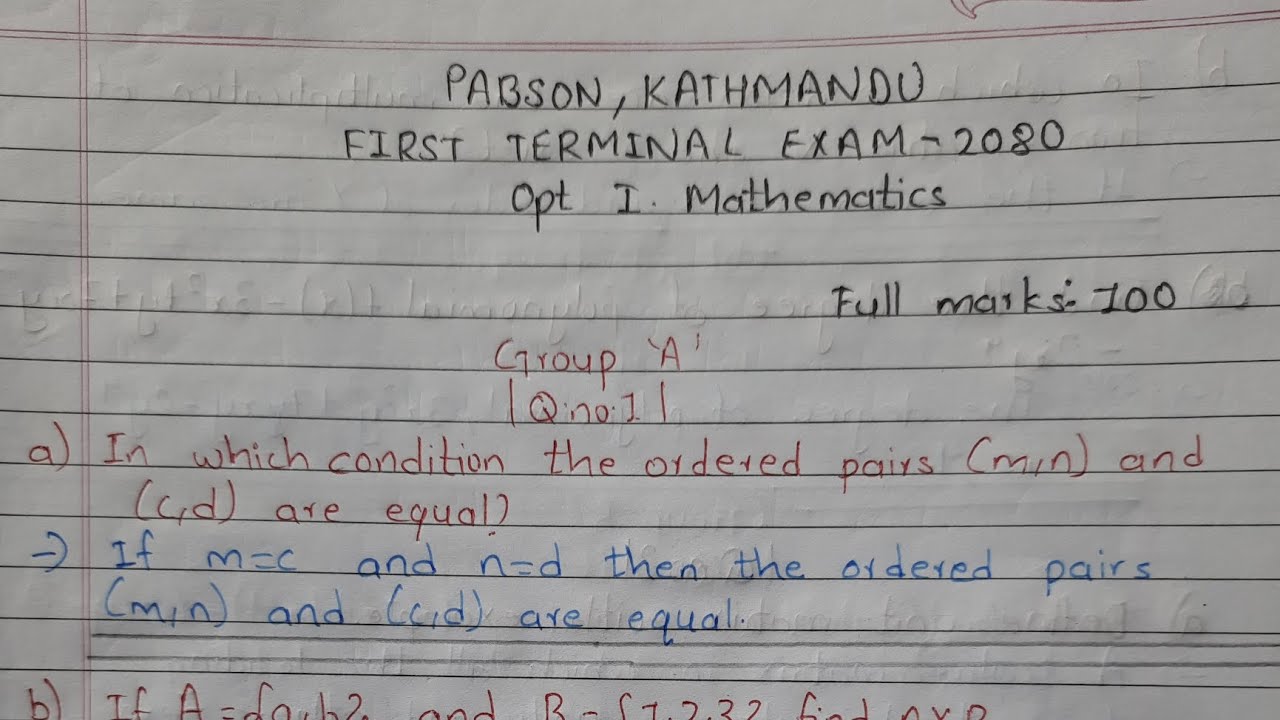 PABSON, KATHMANDU
FIRST TERMINAL EXAM-2080
Opt I. Mathematics
Full marks: 100
Group 'A'
|Q.no.1|
a) In which condition the ordered pairs (m,n) and
(c,d) are equal?
→ If m=c and n=d then the ordered pairs
(m,n) and (c,d) are equal.
b) If A={a,b} and B={1,2,3} find